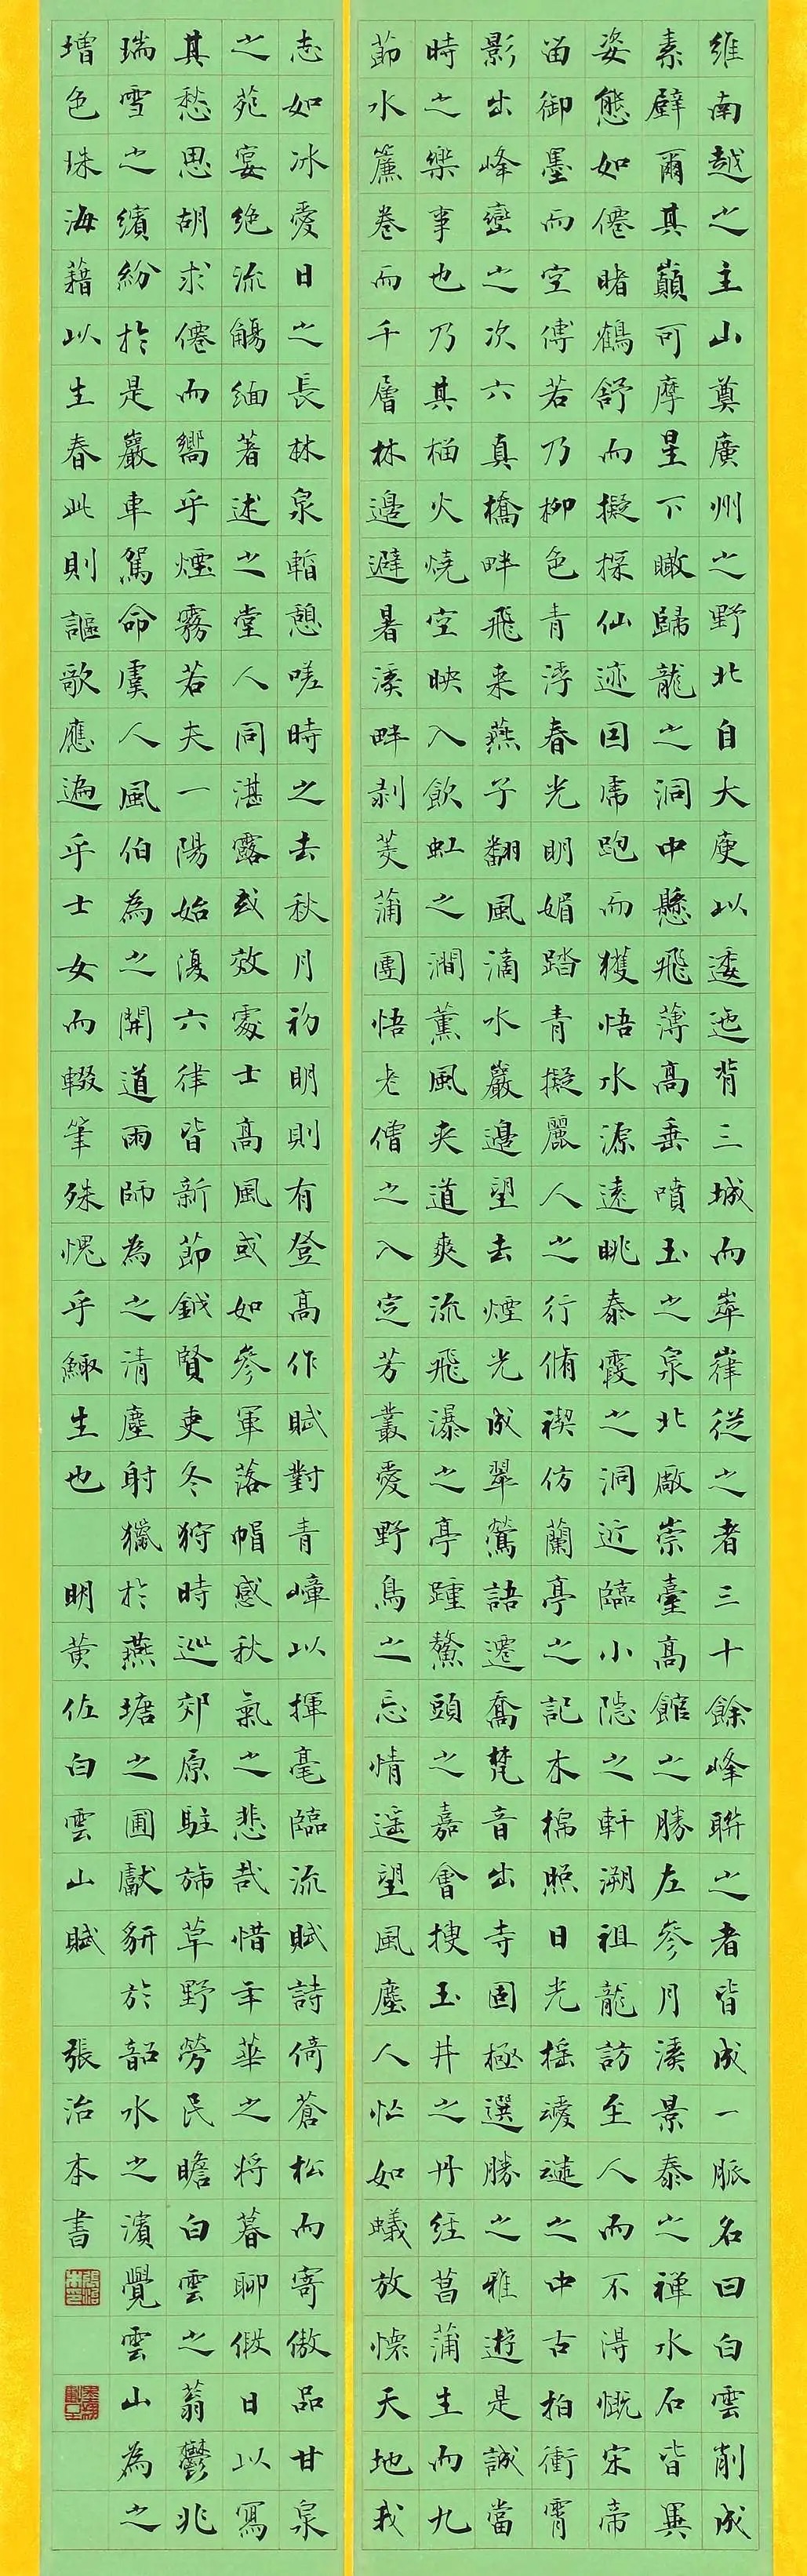 維南越之主山奠廣州之野北自大庾以逶迤背三城而崒嵂從之者三十餘峰聯之者皆成一脈名曰白雲削成
素壁爾其巔可摩星下瞰歸龍之洞中懸飛薄高垂噴玉之泉北厰崇臺高館之勝左參月溪景泰之禪水石皆異
姿態如僊睹鶴舒而擬探仙迹因虎跑而獲悟水源遠眺泰霞之洞近臨小隱之軒溯祖龍訪至人而不得慨宋帝
留御墨而空傳若乃柳色青浮春光明媚踏青擬麗人之行脩禊仿蘭亭之記木棉照日光搖叆叇之中古柏衝霄
影出峰巒之次六真橋畔飛来燕子翻風滴水巖邊望去煙光成翠鶯語遷喬梵音出寺固極選勝之雅遊是誠當
時之樂事也乃其榴火燒空映入飲虹之澗薰風夾道爽流飛瀑之亭踵鰲頭之嘉會搜玉井之丹經菖蒲生而九
節水簾卷而千層林邊避暑溪畔剥芰蒲團悟老僧之入定芳叢愛野鳥之忘情遥望風塵人忙如蟻放懷天地我
志如冰愛日之長林泉暫憩嗟時之去秋月初明則有登高作賦對青嶂以揮毫臨流賦詩倚蒼松而寄傲品甘泉
之苑宴絶流觴緬著述之堂人同湛露或效處士高風或如參軍落帽感秋氣之悲哉惜年華之将暮聊假日以寫
其愁思胡求僊而嚮乎煙霧若夫一陽始復六律皆新節鉞賢吏冬狩時巡郊原駐斾草野勞民瞻白雲之蓊鬱兆
瑞雪之繽紛於是巖車駕命虞人風伯為之開道雨師為之清塵射獵於燕塘之圃獻豜於韶水之濱覺雲山為之
增色珠海藉以生春此則謳歌應遍乎士女而輟筆殊愧乎鯫生也 明黄佐白雲山賦 張治本書